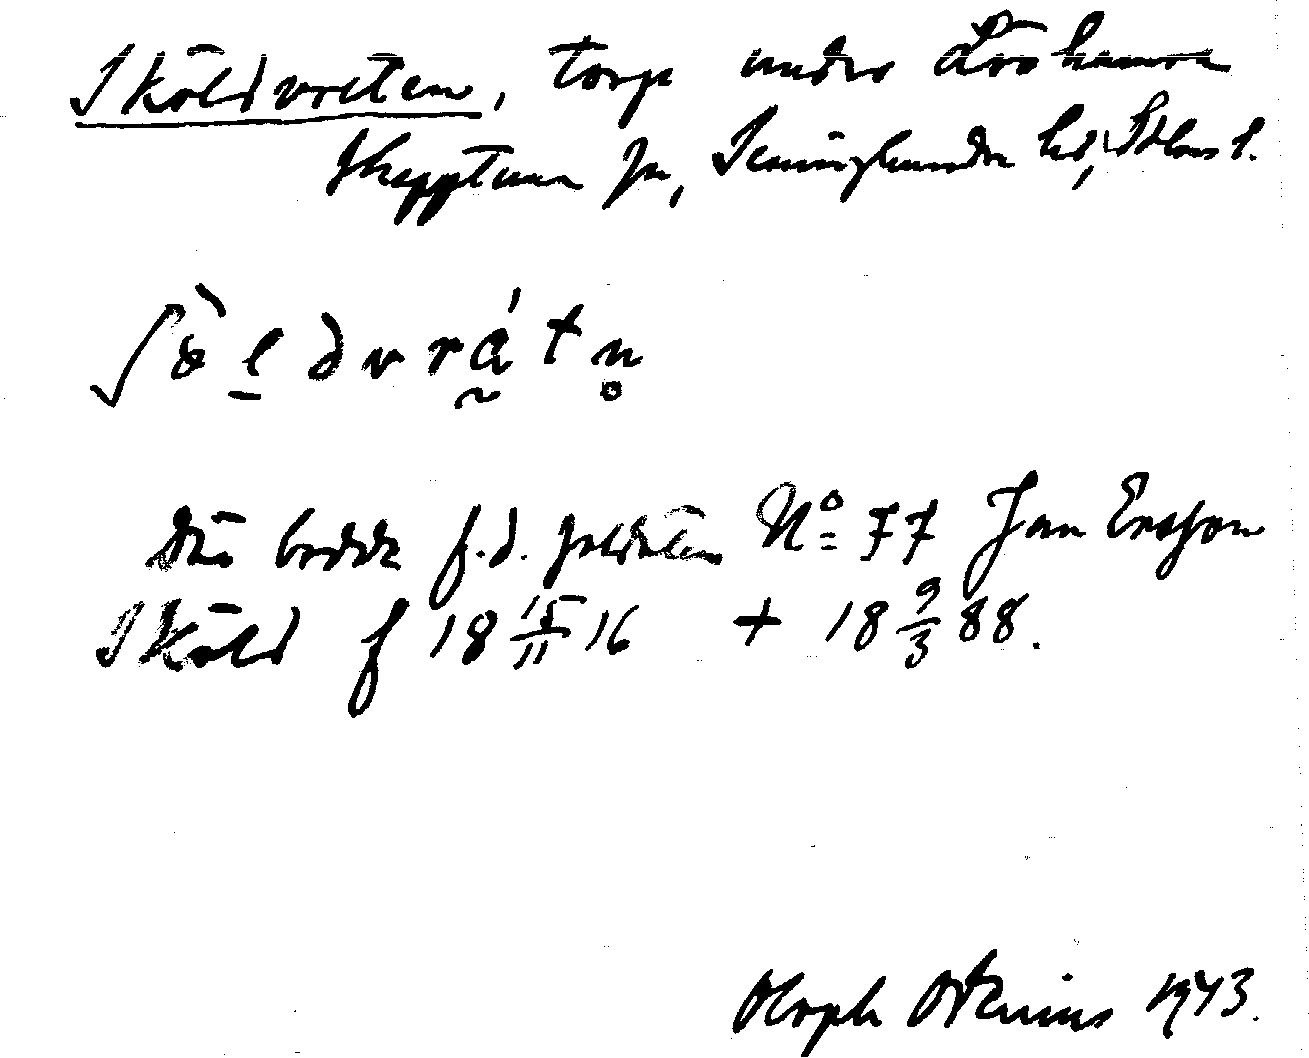 Sköldvreten, torp under Lövhamra
Skepptuna sn, Seminghundra hd, Sthlms l.
ʃö̀ldvrá̰tn̥
Där bodde f.d. soldaten No 77 Jan Ersson
Sköld f 18 15/11 16 + 18 9/3 88.
Oloph Odenius 1943.